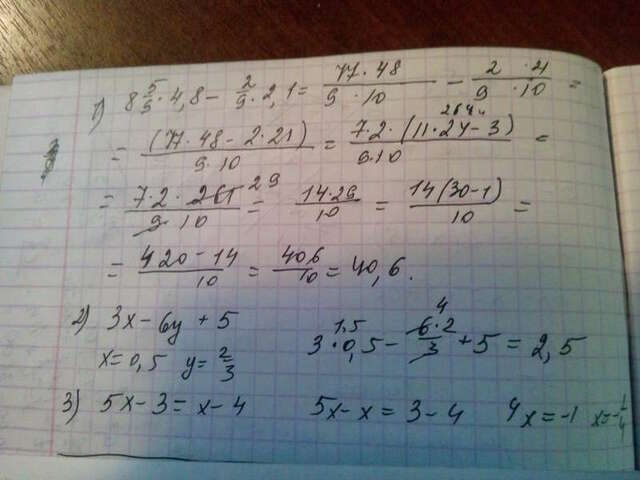 1) 8 5/9 · 4,8 − 2/9 · 2,1 = 77 · 48 / 9 · 10 − 2 · 21 / 9 · 10 =
= (77 · 48 − 2 · 21) / 9 · 10 = 7 · 2 · (11 · 24 − 3) / 9 · 10 =
264
= 7 · 2 · 261 / 9 · 10 = 14 · 29 / 10 = 14 (30 − 1) / 10 =
29
= 420 − 14 / 10 = 406 / 10 = 40,6.
2) 3x − 6y + 5
x = 0,5 y = 2/3
1,5 4
3 · 0,5 − 6 · 2 / 3 + 5 = 2,5
3) 5x − 3 = x − 4 5x − x = 3 − 4 4x = −1 x = −1/4